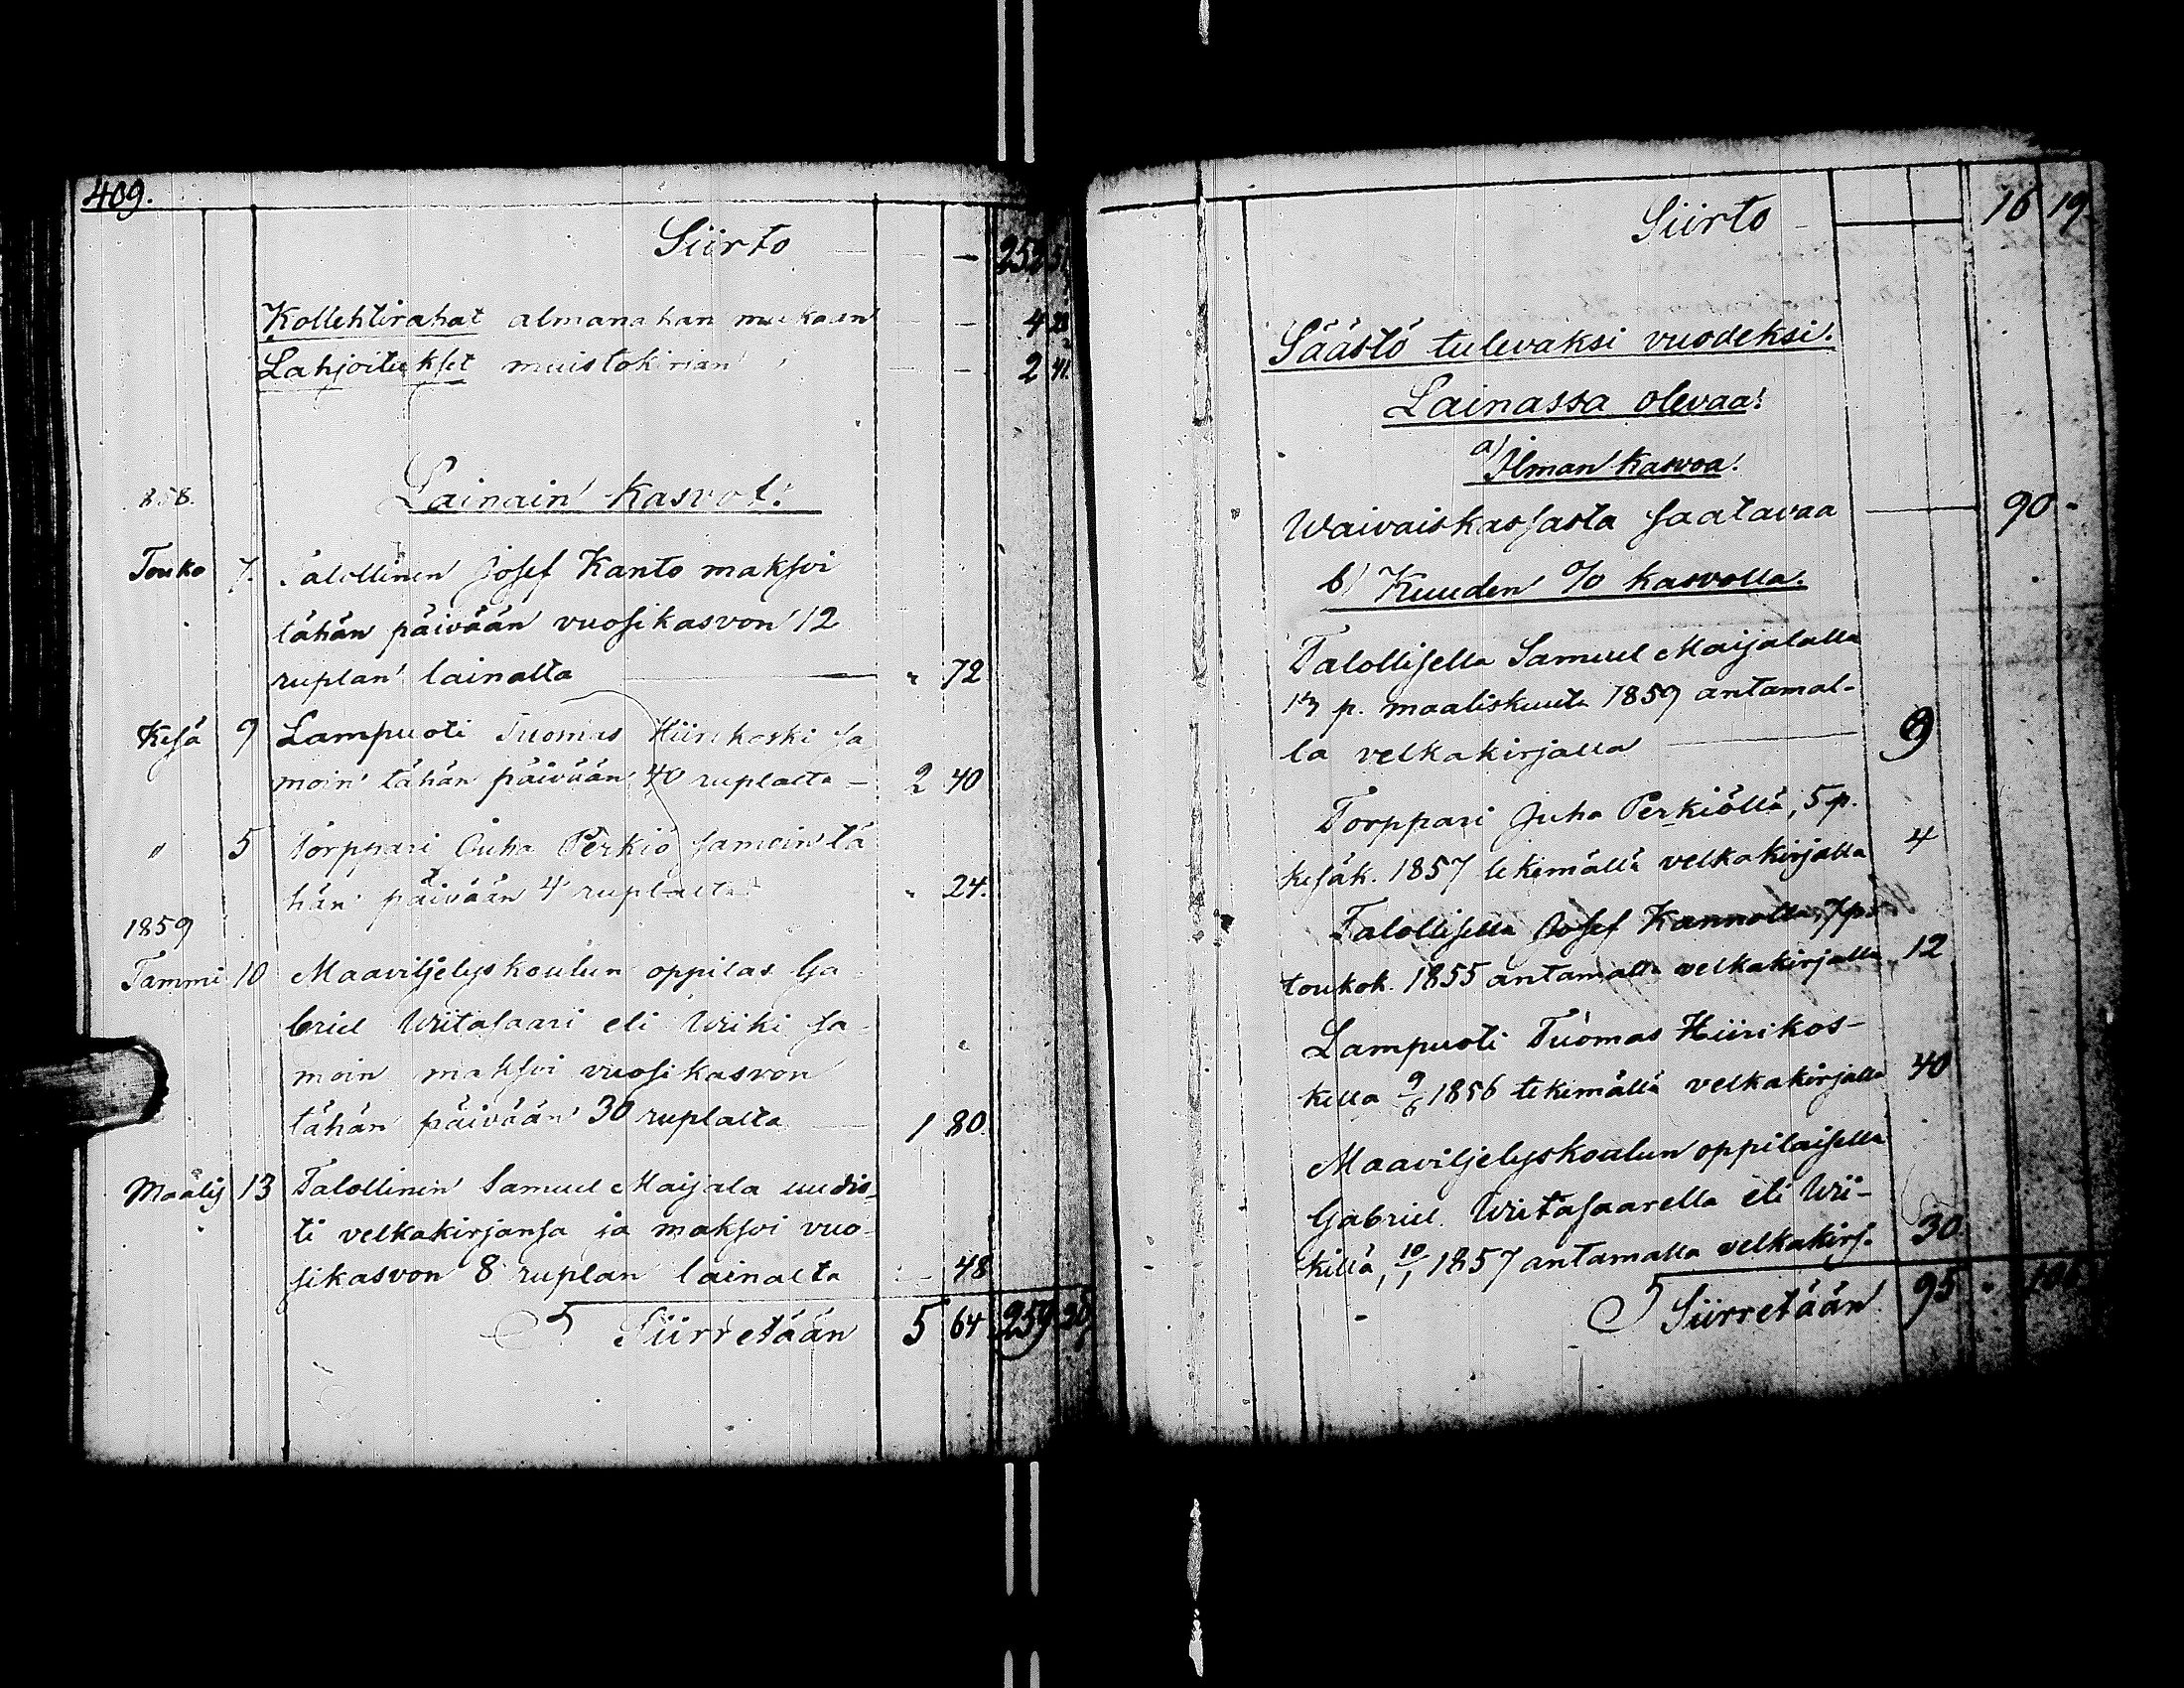 409.
Siirto — 252 51
Kollehtirahat almanahan mukaan — 4 23
Lahjoitukset muistokirjan " — 2 41.
1858. Lainain kasvot.
Touko 7. Talollinen Josef Kanto maksoi
tähän päivään vuosikasvon 12
ruplan lainalta — " 72
Kesä 9 Lampuoti Tuomas Hiirikoski sa
moin tähän päivään 40 ruplalta — 2 40
" 5 Torppari Juha Perkiö samoin tä
hän päivään 4 ruplalta " 24.
1859
Tammi 10 Maaviljelyskoulun oppilas Ga
briel Wiitasaari eli Wiiki sa
moin maksoi vuosikasvon
tähän päivään 30 ruplalta — 1 80.
Maalis 13 Talollinen Samuel Maijala uudis-
ti velkakirjansa ja maksoi vuo-
sikasvon 8 ruplan lainalta — 48
Siirretään 5 64 259
Siirto — 16 19
Säästö tulevaksi vuodeksi.
Lainassa olevaa:
a) Ilman kasvoa.
Waivaiskassasta saatavaa — 90 -
b) Kuuden % kasvolla.
Talollisella Samuel Maijalalla
13 p. maaliskuuta 1859 antamal-
la velkakirjalla — 9
Torppari Juha Perkiöllä, 5 p.
kesäk. 1857 tekemällä velkakirjalla 4
Talollisella Josef Kannolla, 7 p.
toukok. 1855 antamalla velkakirjalla 12
Lampuoti Tuomas Hiirikos-
kella 9/6 1856 tekemällä velkakirjalla 40
Maaviljelyskoulun oppilaisella
Gabriel Wiitasaarella eli Wii-
killä, 10/1 1857 antamalla velkakirj. 30.
Siirretään 95 - 106